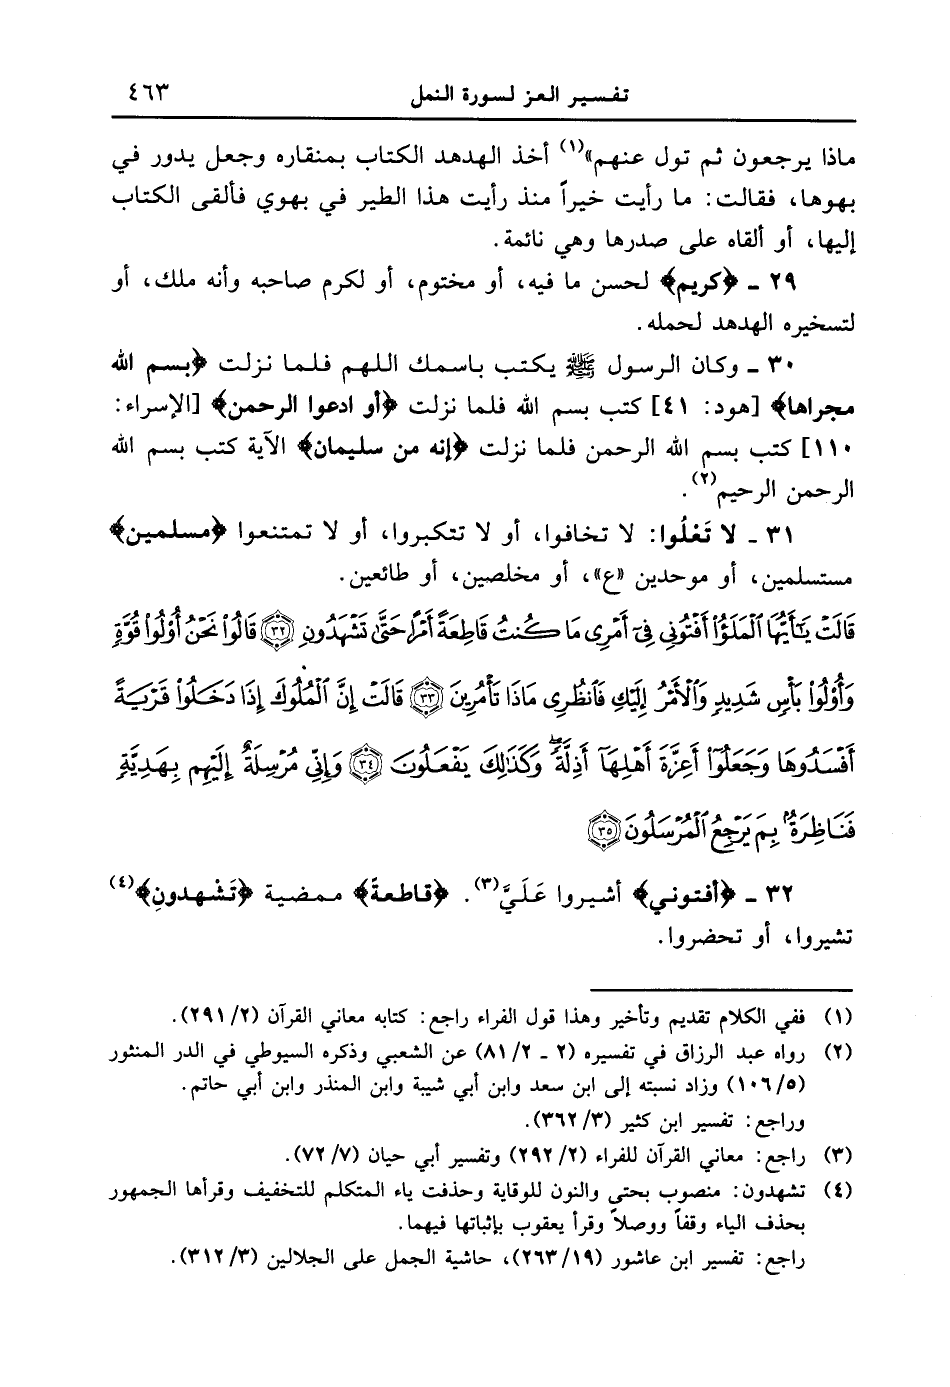 تفسير العز لسورة النمل ٤٦٣
ماذا يرجعون ثم تول عنهم»(١) أخذ الهدهد الكتاب بمنقاره وجعل يدور في
بهوها، فقالت: ما رأيت خيراً منذ رأيت هذا الطير في بهوي فألقى الكتاب
إليها، أو ألقاه على صدرها وهي نائمة.
٢٩ ـ ﴿كريم﴾ لحسن ما فيه، أو مختوم، أو لكرم صاحبه وأنه ملك، أو
لتسخيره الهدهد لحمله.
٣٠ ـ وكان الرسول ﷺ يكتب باسمك اللهم فلما نزلت ﴿بسم الله
مجراها﴾ [هود: ٤١] كتب بسم الله فلما نزلت ﴿أو ادعوا الرحمن﴾ [الإسراء:
١١٠] كتب بسم الله الرحمن فلما نزلت ﴿إنه من سليمان﴾ الآية كتب بسم الله
الرحمن الرحيم(٢).
٣١ ـ لا تَعْلُوا: لا تخافوا، أو لا تتكبروا، أو لا تمتنعوا ﴿مسلمين﴾
مستسلمين، أو موحدين «ع»، أو مخلصين، أو طائعين.
قَالَتْ يَٰٓأَيُّهَا ٱلْمَلَؤُا۟ أَفْتُونِى فِىٓ أَمْرِى مَا كُنتُ قَاطِعَةً أَمْرًا حَتَّىٰ تَشْهَدُونِ ﴿٣٢﴾ قَالُوا۟ نَحْنُ أُو۟لُوا۟ قُوَّةٍ
وَأُو۟لُوا۟ بَأْسٍ شَدِيدٍ وَٱلْأَمْرُ إِلَيْكِ فَٱنظُرِى مَاذَا تَأْمُرِينَ ﴿٣٣﴾ قَالَتْ إِنَّ ٱلْمُلُوكَ إِذَا دَخَلُوا۟ قَرْيَةً
أَفْسَدُوهَا وَجَعَلُوٓا۟ أَعِزَّةَ أَهْلِهَآ أَذِلَّةً ۖ وَكَذَٰلِكَ يَفْعَلُونَ ﴿٣٤﴾ وَإِنِّى مُرْسِلَةٌ إِلَيْهِم بِهَدِيَّةٍ
فَنَاظِرَةٌۢ بِمَ يَرْجِعُ ٱلْمُرْسَلُونَ ﴿٣٥﴾
٣٢ ـ ﴿أفتوني﴾ أشيروا عَلَيَّ(٣). ﴿قاطعةً﴾ ممضية ﴿تَشْهدونِ﴾(٤)
تشيروا، أو تحضروا.
(١) ففي الكلام تقديم وتأخير وهذا قول الفراء راجع: كتابه معاني القرآن (٢/ ٢٩١).
(٢) رواه عبد الرزاق في تفسيره (٢ ـ ٢/ ٨١) عن الشعبي وذكره السيوطي في الدر المنثور
(٥/ ١٠٦) وزاد نسبته إلى ابن سعد وابن أبي شيبة وابن المنذر وابن أبي حاتم.
وراجع: تفسير ابن كثير (٣/ ٣٦٢).
(٣) راجع: معاني القرآن للفراء (٢/ ٢٩٢) وتفسير أبي حيان (٧/ ٧٢).
(٤) تشهدون: منصوب بحتى والنون للوقاية وحذفت ياء المتكلم للتخفيف وقرأها الجمهور
بحذف الياء وقفاً ووصلاً وقرأ يعقوب بإثباتها فيهما.
راجع: تفسير ابن عاشور (١٩/ ٢٦٣)، حاشية الجمل على الجلالين (٣/ ٣١٢).